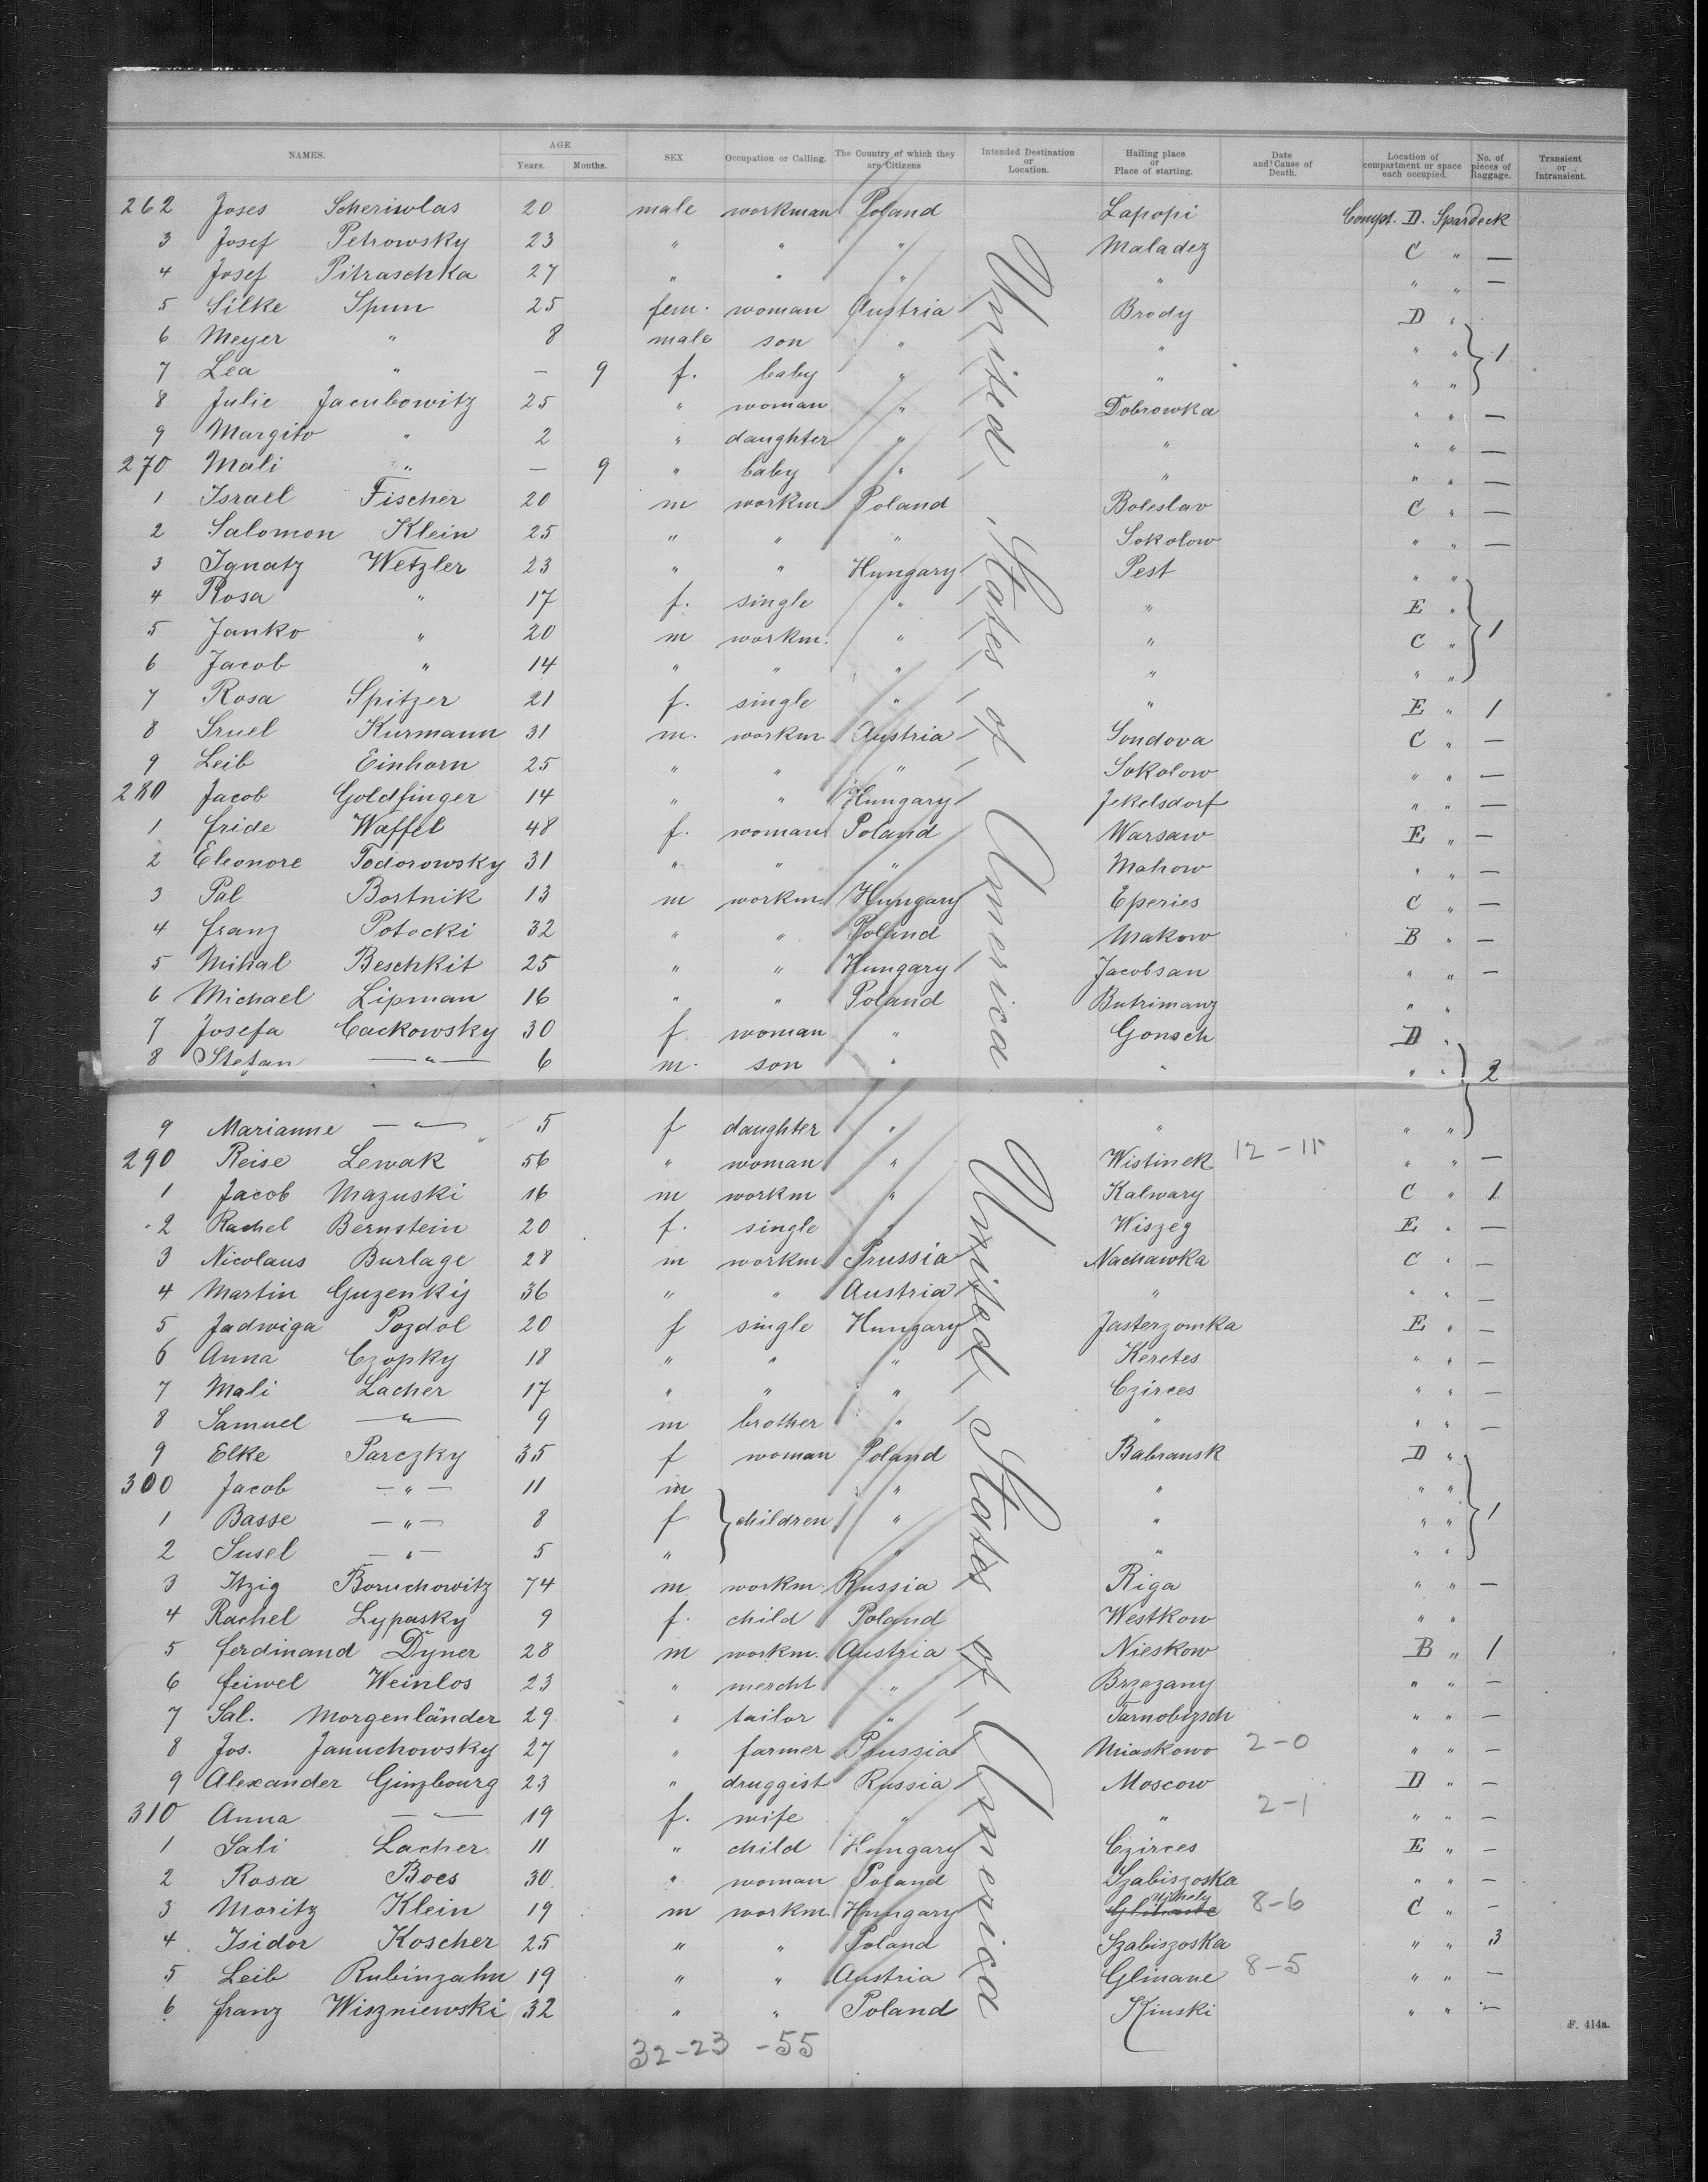 NAMES. AGE Years. Months. SEX Occupation or Calling. The Country of which they are Citizens Intended Destination or Location. Hailing place or Place of starting. Date and Cause of Death. Location of compartment or space each occupied. No. of pieces of Baggage. Transient or Intransient.
262 Joses Scheriwlas 20 male workman Poland Lapopi Compt. D. Spardeck
3 Josef Petrowsky 23 " " " Maladez C " —
4 Josef Pitraschka 27 " " " " " " —
5 Silke Spun 25 fem. woman Austria Brody D "
6 Meyer " 8 male son " " " " 1
7 Lea " — 9 f. baby " " " "
8 Julie Jacubowitz 25 " woman " Dobrowka " " —
9 Margito " 2 " daughter " " " " —
270 Mali " — 9 " baby " " " " —
1 Israel Fischer 20 m workm Poland Boleslav C " —
2 Salomon Klein 25 " " " Sokolow " " —
3 Ignatz Wetzler 23 " " Hungary Pest " "
4 Rosa " 17 f. single " " E "
5 Janko " 20 m workm. " " C " 1
6 Jacob " 14 " " " " " "
7 Rosa Spitzer 21 f. single " " E " 1
8 Sruel Kurmann 31 m. workm Austria Sondova C " —
9 Leib Einhorn 25 " " " Sokolow " " —
280 Jacob Goldfinger 14 " " Hungary Jekelsdorf " " —
1 Fride Waffel 48 f. woman Poland Warsaw E " —
2 Eleonore Todorowsky 31 " " " Mahow " " —
3 Pal Bortnik 13 m workm Hungary Eperies C " —
4 Franz Potocki 32 " " Poland Makow B " —
5 Mihal Beschkit 25 " " Hungary Jacobsan " " —
6 Michael Lipman 16 " " Poland Butrimanz " "
7 Josefa Cackowsky 30 f woman " Gonsch D "
8 Stefan — " — 6 m. son " " " " 2
9 Marianne — " — 5 f daughter " " " "
290 Reise Lewak 56 " woman " Wistinek 12-11 " " —
1 Jacob Mazuski 16 m workm " Kalwary C " 1
2 Rachel Bernstein 20 f. single " Wiszeg E " —
3 Nicolaus Burlage 28 m workm Prussia Nachawka C " —
4 Martin Guzenkij 36 " " Austria " " " —
5 Jadwiga Pozdol 20 f single Hungary Jasterzomka E " —
6 Anna Czopky 18 " " " Keretes " " —
7 Mali Lacher 17 " " " Czirces " " —
8 Samuel — " — 9 m brother " " " " —
9 Elke Parczky 35 f woman Poland Babransk D "
300 Jacob — " — 11 m " " " "
1 Basse — " — 8 f children " " " " 1
2 Susel — " — 5 " " " " "
3 Itzig Boruchowitz 74 m workm. Russia Riga " " —
4 Rachel Lypasky 9 f. child Poland Westkow " "
5 Ferdinand Dyner 28 m workm. Austria Nieskow B " 1
6 Feiwel Weinlos 23 " mercht " Brzezany " " —
7 Sal. Morgenländer 29 " tailor " Tarnobizsch " " —
8 Jos. Januchowsky 27 " farmer Prussia Miaskowo 2-0 " " —
9 Alexander Ginzbourg 23 " druggist Russia Moscow D " —
310 Anna — " — 19 f. wife " " 2-1 " " —
1 Sali Lacher 11 " child Hungary Czirces E " —
2 Rosa Boes 30 " woman Poland Szabiszoska " " —
3 Moritz Klein 19 m workm Hungary Ujhely 8-6 C " —
4 Isidor Koscher 25 " " Poland Szabiszoska " " 3
5 Leib Rubinzahn 19 " " Austria Glinane 8-5 " " —
6 Franz Wiszniewski 32 " " Poland Kinski " " —
United States of America
United States of America
32-23 -55
F. 414a.